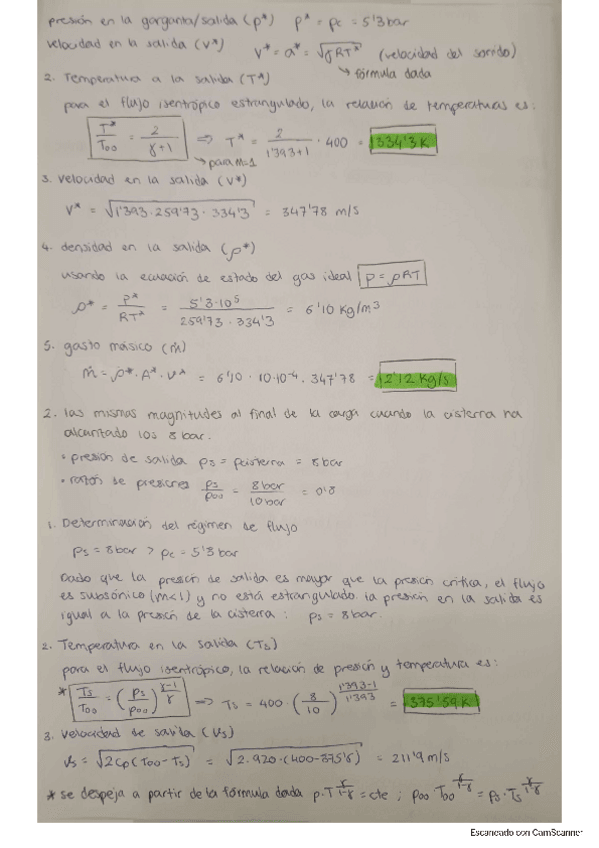 presión en la garganta/salida (p*) p* = pc = 5'3 bar
velocidad en la salida (v*) v* = a* = √γRT* (velocidad del sonido)
↳ fórmula dada
2. Temperatura a la salida (T*)
para el flujo isentrópico estrangulado, la relación de temperaturas es:
T*/T00 = 2/(γ+1) ⇒ T* = 2/(1'393+1) · 400 = 334'3 K
↳ para M=1
3. velocidad en la salida (v*)
v* = √1'393·259'73·334'3 = 347'78 m/s
4. densidad en la salida (ρ*)
usando la ecuación de estado del gas ideal p = ρRT
ρ* = P*/RT* = 5'3·10⁵/259'73·334'3 = 6'10 kg/m³
5. gasto másico (ṁ)
ṁ = ρ*·A*·v* = 6'10 · 10·10⁻⁴ · 347'78 = 2'12 kg/s
2. las mismas magnitudes al final de la carga cuando la cisterna ha
alcanzado los 8 bar.
• presión de salida ps = pcisterna = 8 bar
• razón de presiones ps/p00 = 8 bar/10 bar = 0'8
1. Determinación del régimen de flujo
ps = 8 bar > pc = 5'3 bar
Dado que la presión de salida es mayor que la presión crítica, el flujo
es subsónico (M<1) y no está estrangulado. la presión en la salida es
igual a la presión de la cisterna: ps = 8 bar.
2. Temperatura en la salida (Ts)
para el flujo isentrópico, la relación de presión y temperatura es:
* Ts/T00 = (ps/p00)^((γ-1)/γ) ⇒ Ts = 400 · (8/10)^((1'393-1)/1'393) = 375'59 K
3. velocidad de salida (vs)
vs = √2cp(T00-Ts) = √2·920·(400-375'8) = 211'9 m/s
* se despeja a partir de la fórmula dada p·T^(γ/(1-γ)) = cte ; p00 T00^(γ/(1-γ)) = ps·Ts^(γ/(1-γ))
Escaneado con CamScanner